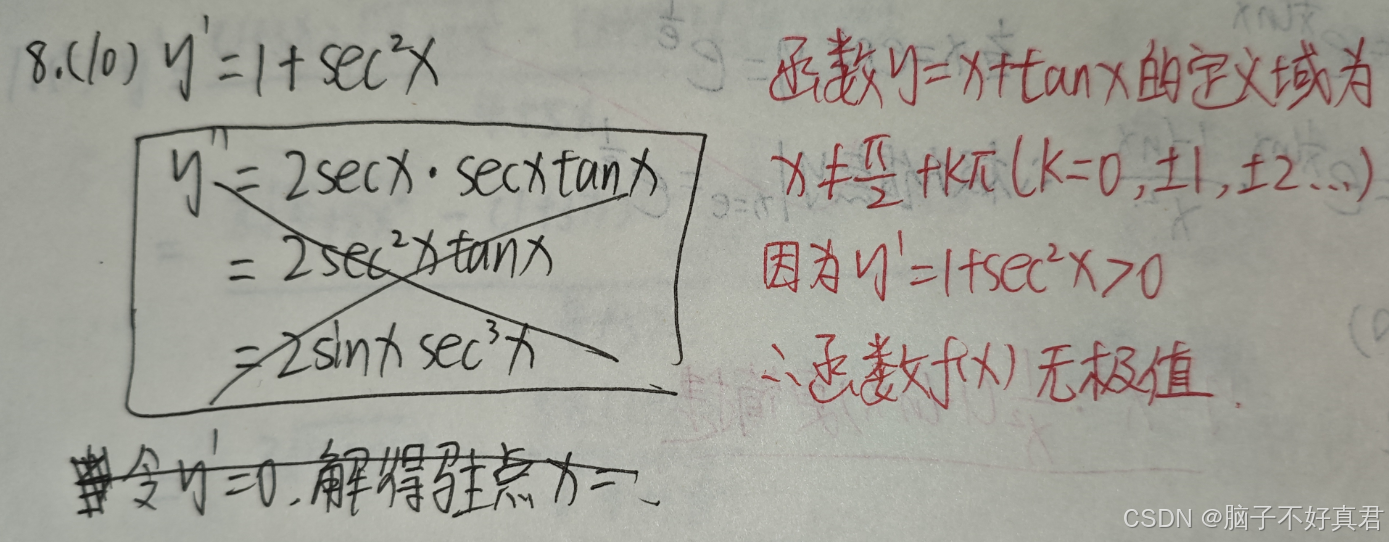 8.(10) y' = 1 + sec²x
y'' = 2secx · secxtanx
= 2sec²xtanx
= 2sinx sec³x
令y'=0,解得驻点x=
函数y=x+tanx的定义域为
x≠π/2+kπ(k=0,±1,±2...)
因为y'=1+sec²x>0
∴函数f(x)无极值.
CSDN @脑子不好真君